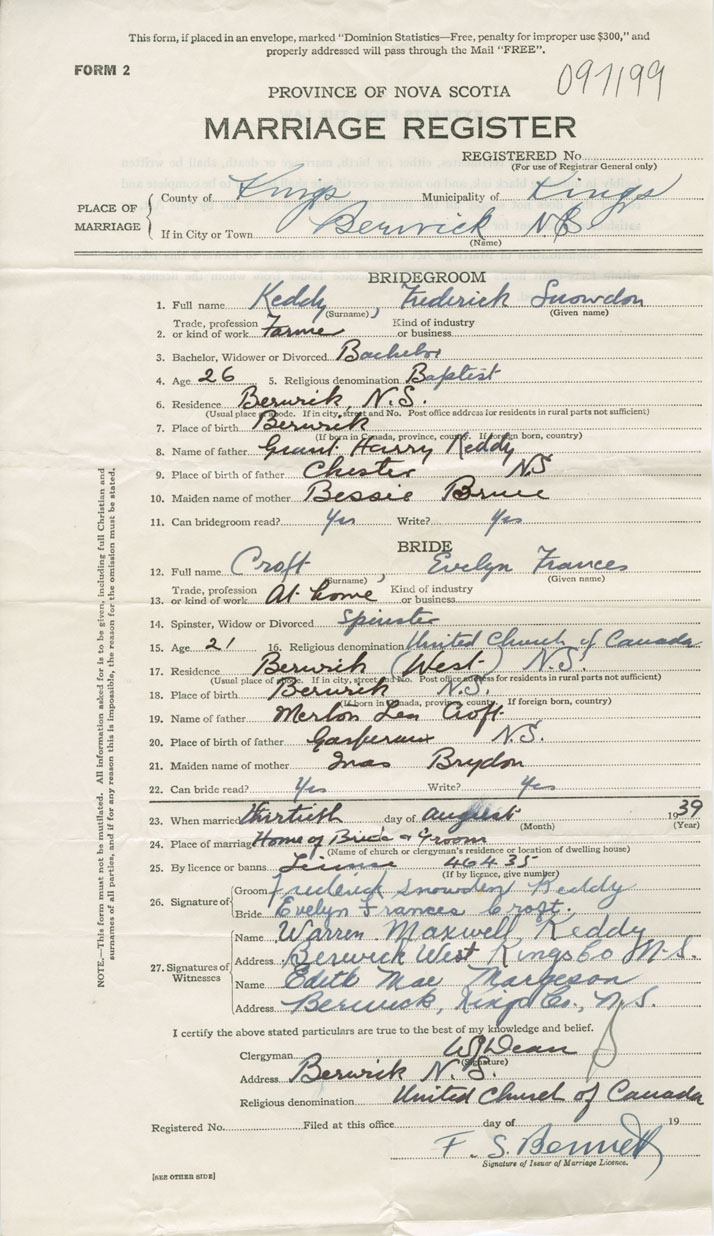 This form, if placed in an envelope, marked "Dominion Statistics—Free, penalty for improper use $300," and
properly addressed will pass through the Mail "FREE".
FORM 2
091199
PROVINCE OF NOVA SCOTIA
MARRIAGE REGISTER
REGISTERED No.
(For use of Registrar General only)
PLACE OF MARRIAGE
County of Kings Municipality of Kings
If in City or Town Berwick N.S.
(Name)
BRIDEGROOM
1. Full name Keddy, Frederick Snowdon
(Surname) (Given name)
2. Trade, profession or kind of work Farmer Kind of industry or business
3. Bachelor, Widower or Divorced Bachelor
4. Age 26 5. Religious denomination Baptist
6. Residence Berwick, N.S.
(Usual place of abode. If in city, street and No. Post office address for residents in rural parts not sufficient)
7. Place of birth Berwick
(If born in Canada, province, county. If foreign born, country)
8. Name of father Grant Harry Keddy
9. Place of birth of father Chester N.S
10. Maiden name of mother Bessie Bruce
11. Can bridegroom read? Yes Write? Yes
BRIDE
12. Full name Croft, Evelyn Frances
(Surname) (Given name)
13. Trade, profession or kind of work At home Kind of industry or business
14. Spinster, Widow or Divorced Spinster
15. Age 21 16. Religious denomination United Church of Canada
17. Residence Berwick (West) N.S.
(Usual place of abode. If in city, street and No. Post office address for residents in rural parts not sufficient)
18. Place of birth Berwick N.S.
(If born in Canada, province, county. If foreign born, country)
19. Name of father Merlon Leo Croft
20. Place of birth of father Gaspereaux N.S.
21. Maiden name of mother Inas Brydon
22. Can bride read? Yes Write? Yes
23. When married Thirtieth day of August 1939
(Month) (Year)
24. Place of marriage Home of Bride & Groom
(Name of church or clergyman's residence or location of dwelling house)
25. By licence or banns License 46435
(If by licence, give number)
26. Signature of
Groom Frederick Snowden Keddy
Bride Evelyn Frances Croft.
27. Signatures of Witnesses
Name Warren Maxwell Keddy
Address Berwick West Kings Co N.S.
Name Edith Mae Margeson
Address Berwick, Kings Co., N.S.
I certify the above stated particulars are true to the best of my knowledge and belief.
Clergyman WJ Dean
(Signature)
Address Berwick N.S.
Religious denomination United Church of Canada
Registered No. Filed at this office day of 19
F. S. Bennett
Signature of Issuer of Marriage Licence.
[SEE OTHER SIDE]
NOTE.—This form must not be mutilated. All information asked for is to be given, including full Christian and
surnames of all parties, and if for any reason this is impossible, the reason for the omission must be stated.